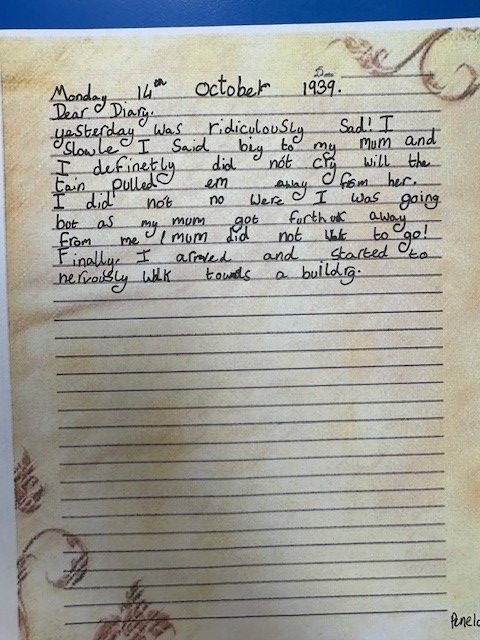 Monday 14th October 1939.
Dear Diary.
yesterday was ridiculously Sad! I
Slowle I Said biy to my mum and
I definetly did not cry will the
tain pulled em away from her.
I did not no were I was going
but as my mum got furthur away
from me I mum did not wat to go!
Finally, I arroved and started to
nervously walk towds a buildrg.
Penelo